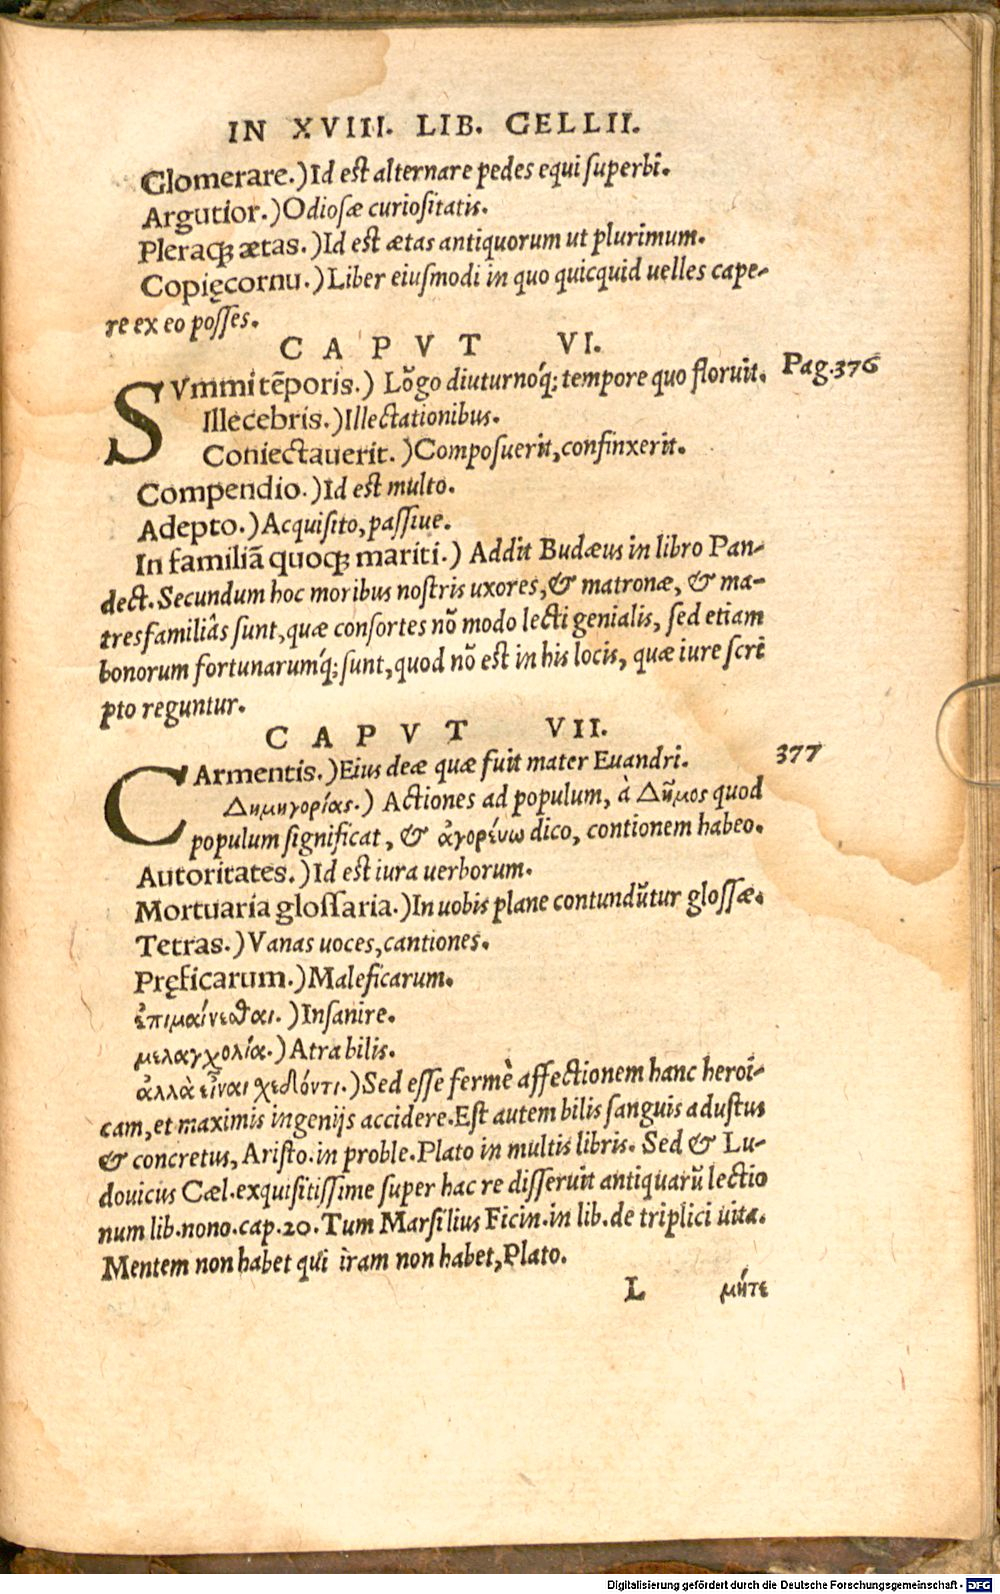 IN XVIII. LIB. GELLII.
Glomerare.) Id est alternare pedes equi superbi.
Argutior.) Odiosæ curiositatis.
Pleraq; ætas.) Id est ætas antiquorum ut plurimum.
Copięcornu.) Liber eiusmodi in quo quicquid uelles cape-
re ex eo posses.
CAPVT VI.
SVmmi tẽporis.) Lõgo diuturnóq; tempore quo floruit. Pag.376
Illecebris.) Illectationibus.
Coniectauerit.) Composuerit, confinxerit.
Compendio.) Id est multo.
Adepto.) Acquisito, passiue.
In familiã quoq; mariti.) Addit Budæus in libro Pan-
dect. Secundum hoc moribus nostris uxores, & matronæ, & ma-
tresfamiliâs sunt, quæ consortes nõ modo lecti genialis, sed etiam
bonorum fortunarumq́; sunt, quod nõ est in his locis, quæ iure scri
pto reguntur.
CAPVT VII.
CArmentis.) Eius deæ quæ fuit mater Euandri. 377
Δημηγορίας.) Actiones ad populum, à Δῆμος quod
populum significat, & ἀγορέυω dico, contionem habeo.
Autoritates.) Id est iura uerborum.
Mortuaria glossaria.) In uobis plane contundũtur glossæ.
Tetras.) Vanas uoces, cantiones.
Pręficarum.) Maleficarum.
ἐπιμαίνεσθαι.) Insanire.
μελαγχολία.) Atra bilis.
ἀλλὰ εἶναι χεδόντι.) Sed esse fermè affectionem hanc heroi-
cam, et maximis ingenijs accidere. Est autem bilis sanguis adustus
& concretus, Aristo. in proble. Plato in multis libris. Sed & Lu-
douicus Cæl. exquisitissime super hac re disseruit antiquarũ lectio
num lib. nono. cap. 20. Tum Marsilius Ficin. in lib. de triplici uita.
Mentem non habet qui iram non habet, Plato.
L μήτε
Digitalisierung gefördert durch die Deutsche Forschungsgemeinschaft - DFG